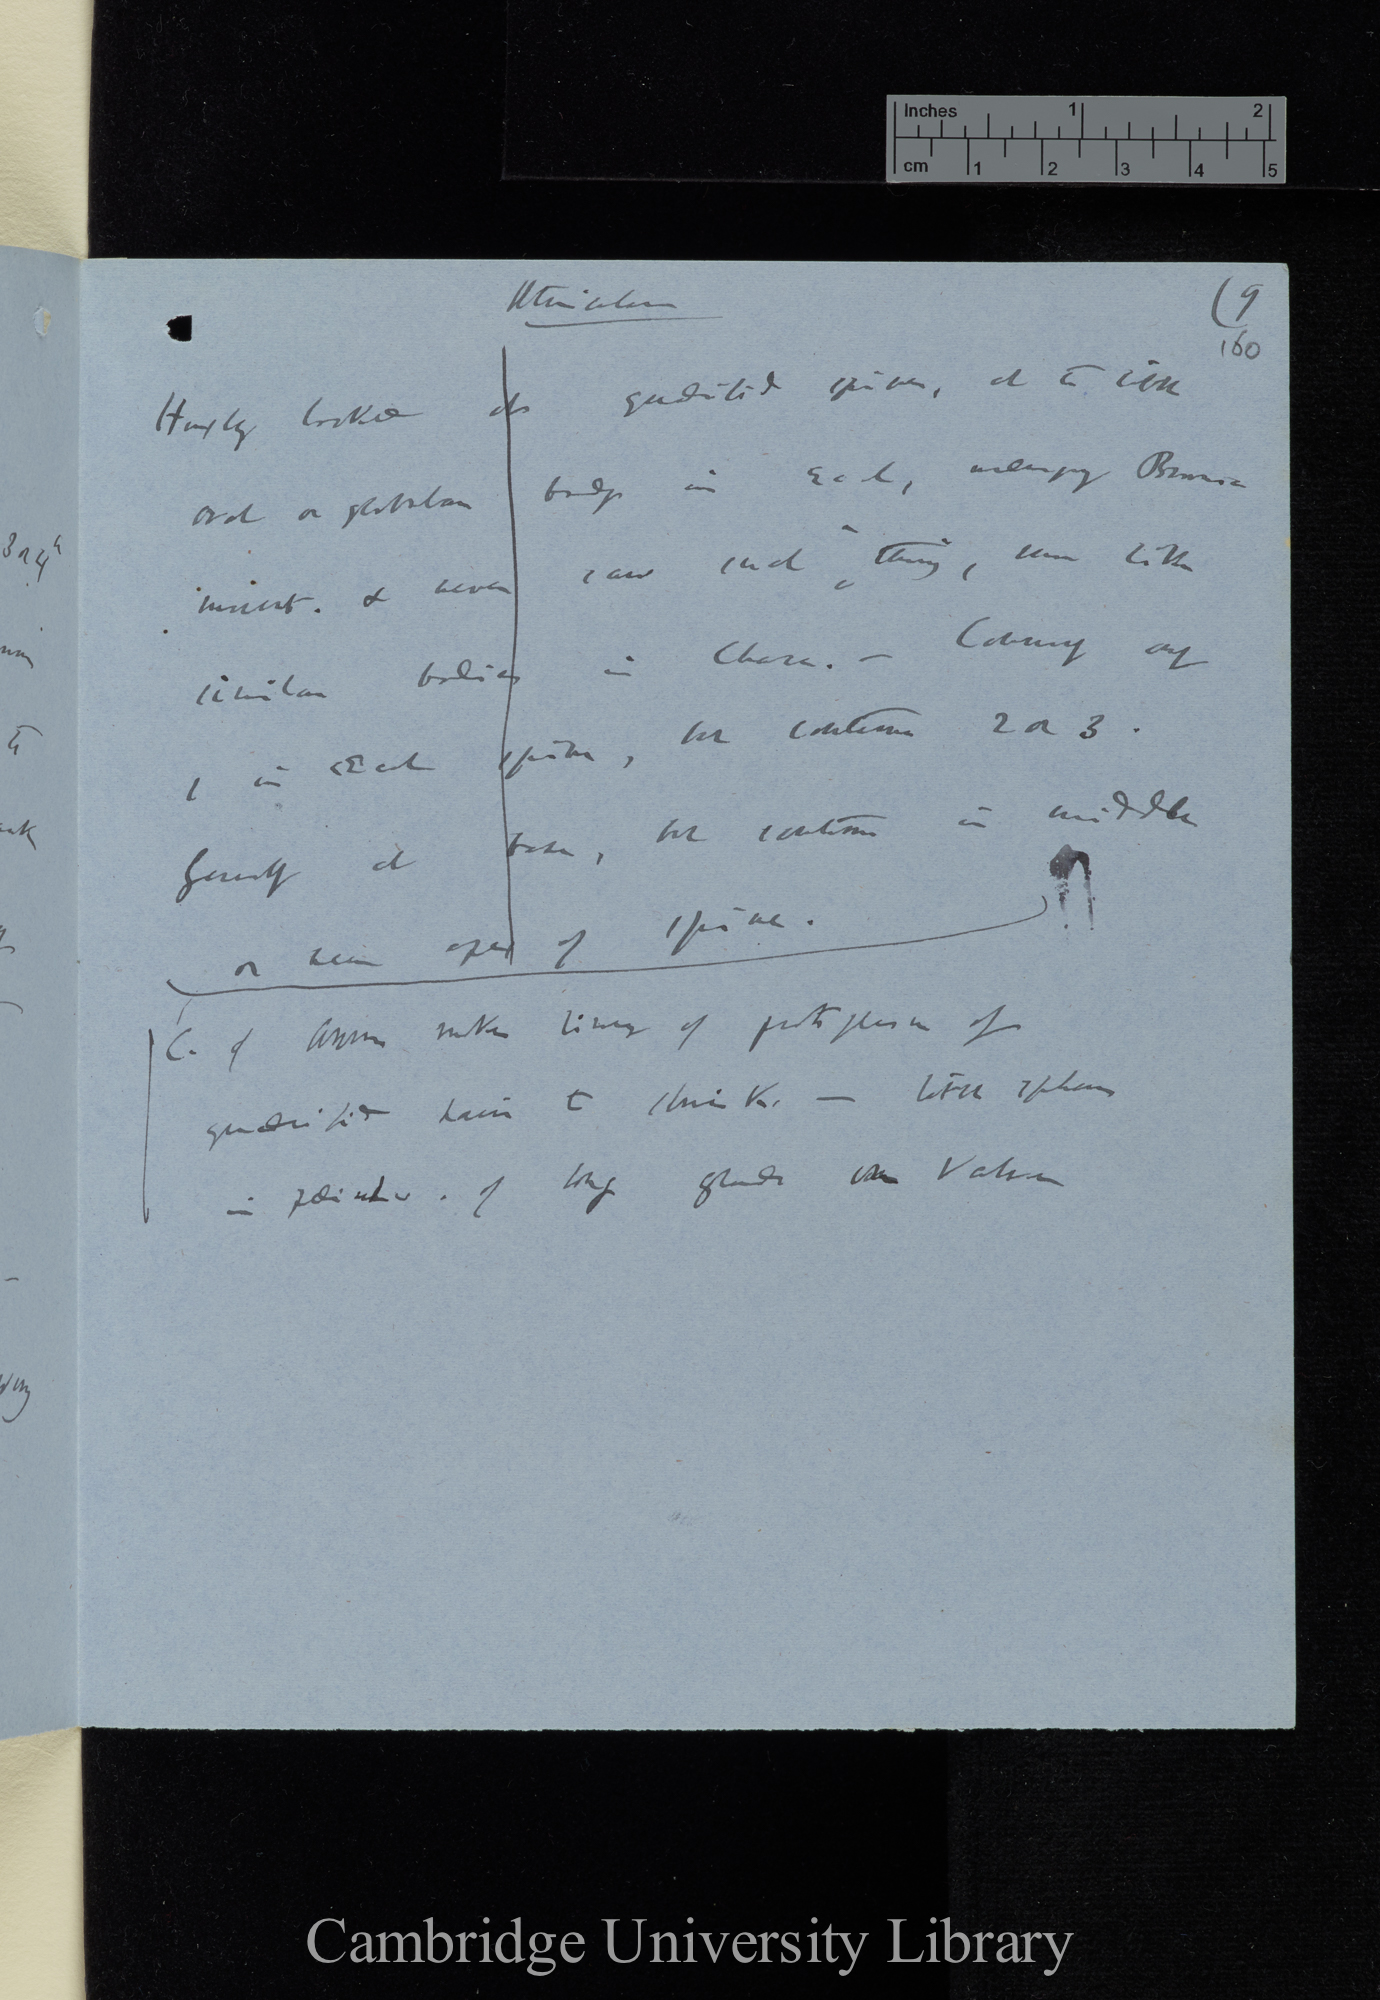 Inches 1 2
cm 1 2 3 4 5
Utricularia
(9
160
Huxley looked at quadrifid spines, at the little
oval or globular body in each, undergoing Brownian
movement. & never saw such a thing, saw little
similar bodies in Chara. — Commonly only
1 in each spine, but sometimes 2 or 3.
Generally at base, but sometimes in middle
or near apex of spine.
C. of Ammonia makes lining of protoplasm of
quadrifid hairs to shrink. — little spheres
in of long glands on Valve
3 or 4
Cambridge University Library